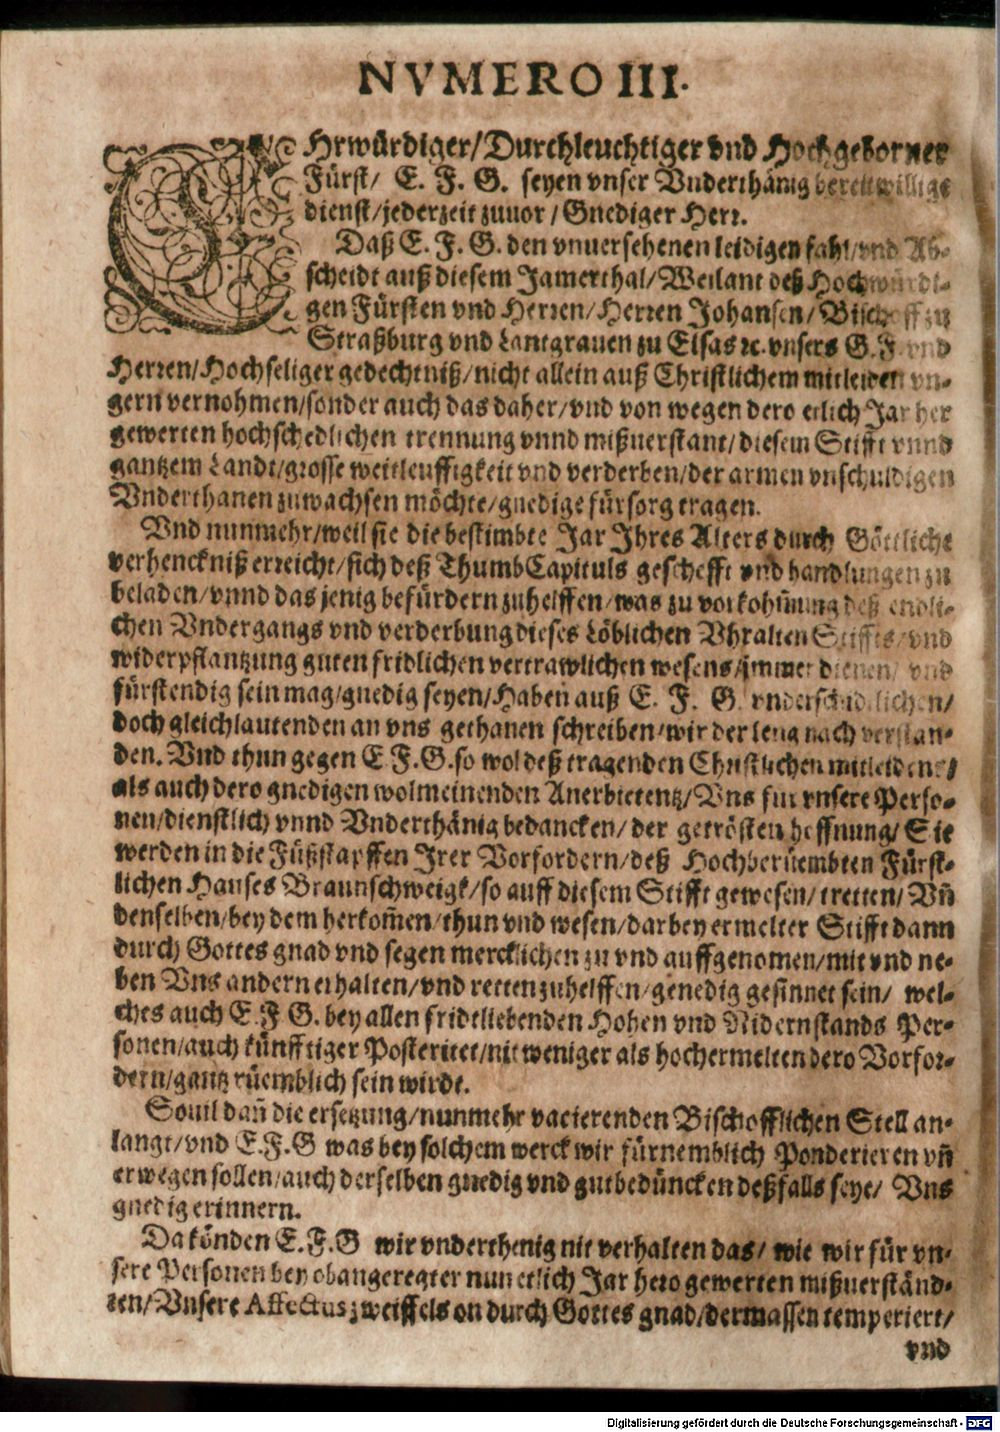 NVMERO III.
EHrwürdiger/Durchleuchtiger vnd Hochgeborner
Fürst/ E. F. G. seyen vnser Vnderthänig bereitwillige
dienst/jederzeit zuuor/Gnediger Herr.
Daß E. F. G. den vnuersehenen leidigen fahl/vnd Ab-
scheidt auß diesem Jamerthal/Weilant deß Hochwürdi-
gen Fürsten vnd Herren/Herren Johansen/Bischoff zu
Straßburg vnd Lantgrauen zu Elsas ꝛc. vnsers G. F. vnd
Herren/Hochseliger gedechtniß/nicht allein auß Christlichem mitleiden vn-
gern vernohmen/sonder auch das daher/vnd von wegen dero etlich Jar her
gewerten hochschedlichen trennung vnnd mißuerstant/diesem Stifft vnnd
gantzem Landt/grosse weitleuffigkeit vnd verderben/der armen vnschuldigen
Vnderthanen zuwachsen möchte/gnedige fürsorg tragen.
Vnd nunmehr/weil sie die bestimbte Jar Jhres Alters durch Göttliche
verhenckniß erreicht/sich deß ThumbCapituls geschefft vnd handlungen zu
beladen/vnnd das jenig befürdern zuhelffen/was zu vorkohm̄ung deß endli-
chen Vndergangs vnd verderbung dieses Löblichen Vhralten Stiffts/vnd
widerpflantzung guten fridlichen vertrawlichen wesens/jmmer dienen/ vnd
fürstendig sein mag/gnedig seyen/Haben auß E. F. G. vnderschidlichen/
doch gleichlautenden an vns gethanen schreiben/wir der leng nach verstan-
den. Vnd thun gegen E F.G.so wol deß tragenden Christlichen mitleidens/
als auch dero gnedigen wolmeinenden Anerbietentz/Vns für vnsere Perso-
nen/dienstlich vnnd Vnderthänig bedancken/ der getrösten hoffnung/ Sie
werden in die Füßstapffen Jrer Vorfordern/deß Hochberüembten Fürst-
lichen Hauses Braunschweigk/so auff diesem Stifft gewesen/tretten/Vn̄
denselben/bey dem herkom̄en/thun vnd wesen/darbey ermelter Stifft dann
durch Gottes gnad vnd segen mercklichen zu vnd auffgenomen/mit vnd ne-
ben Vns andern erhalten/vnd retten zuhelffen/genedig gesinnet sein/ wel-
ches auch E.F G. bey allen fridtliebenden Hohen vnd Nidernstands Per-
sonen/auch künfftiger Posteritet/nit weniger als hochermelten dero Vorfor-
dern/gantz rüemblich sein wirdt.
Souil dan̄ die ersetzung/nunmehr vacierenden Bischofflichen Stell an-
langt/vnd E.F.G was bey solchem werck wir fürnemblich Ponderieren vn̄
erwegen sollen/auch derselben gnedig vnd gutbedüncken deßfalls seye/ Vns
gnedig erinnern.
Da könden E.F.G wir vnderthenig nit verhalten das/ wie wir für vn-
sere Personen bey obangeregter nun etlich Jar hero gewerten mißuerständ-
ten/Vnsere Affectus zweiffels on durch Gottes gnad/dermassen temperiert/
vnd
Digitalisierung gefördert durch die Deutsche Forschungsgemeinschaft - DFG